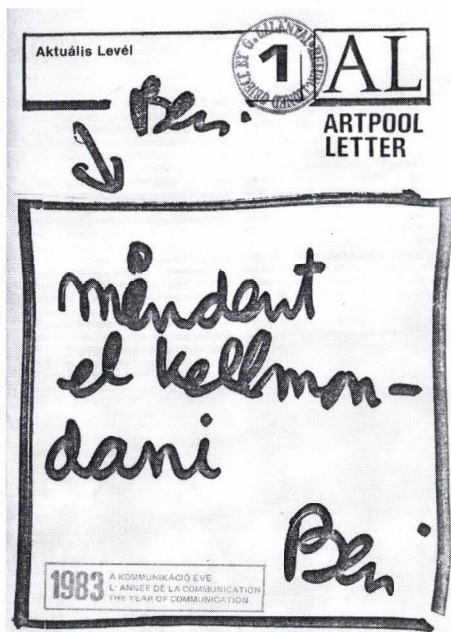 Aktuális Levél
1
AL
ARTPOOL
LETTER
Ben.
mindent
el kellmon-
dani
Ben
1983
A KOMMUNIKÁCIÓ ÉVE
L' ANNÉE DE LA COMMUNICATION
THE YEAR OF COMMUNICATION